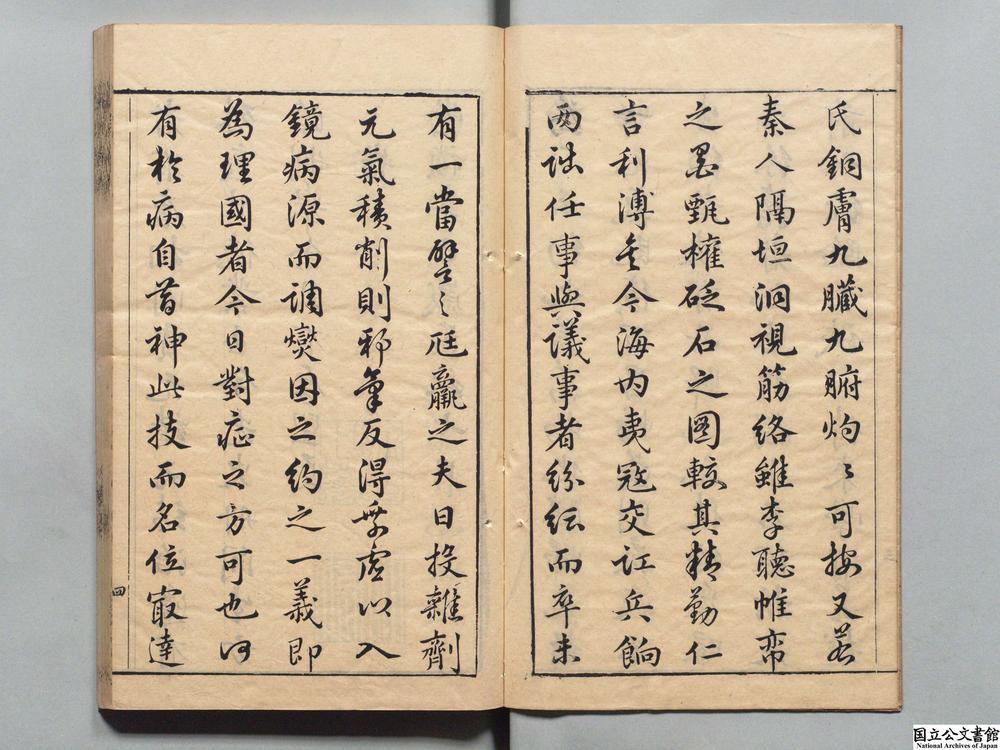 氏銅膚九臟九腑灼〻可按又若
秦人隔垣洞視筋絡雖李聽帷帟
之甄權砭石之圖較其精勤仁
言利溥矣今海內夷寇交訌兵餉
兩詘任事與議事者紛紜而卒未
有一當譬之尫羸之夫日投雜劑
元氣積削則邪氣反得乘虛以入
鏡病源而調爕因之約之一義即
為理國者今日對症之方可也何
有於病自昔神此技而名位㝡達
四
国立公文書館
National Archives of Japan